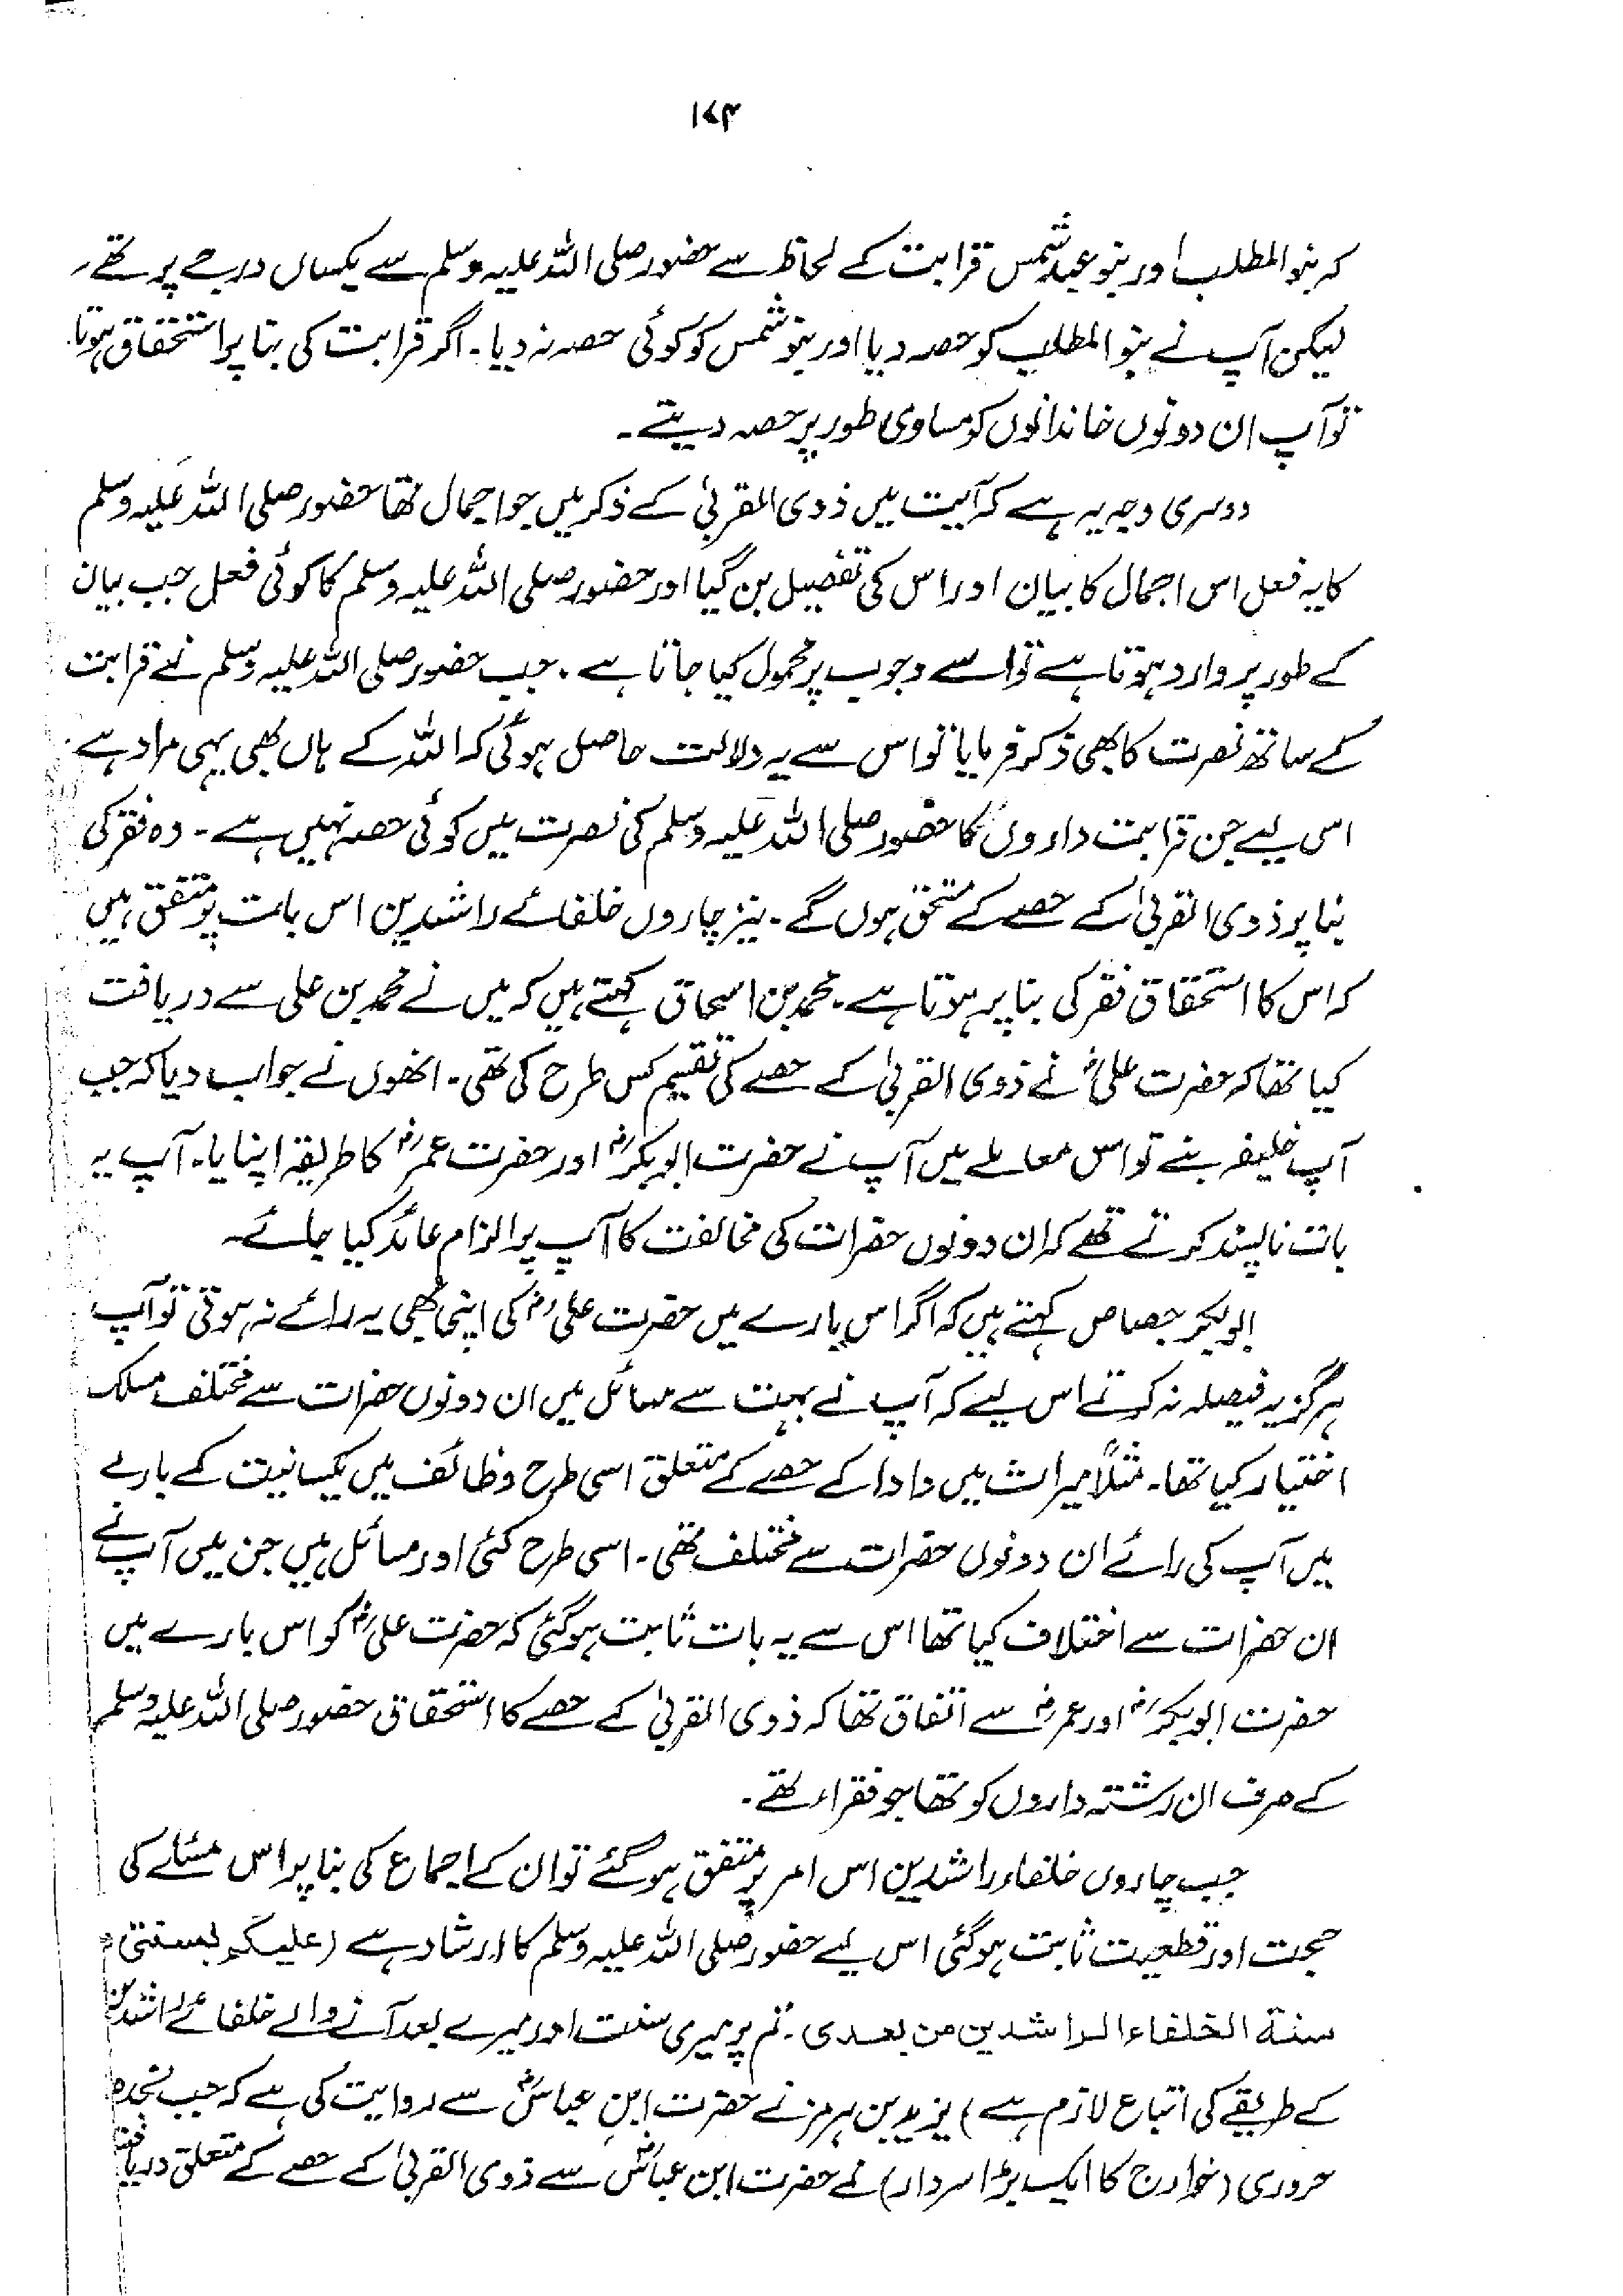 ۱۷۴
کہ بنو المطلب اور بنو عبد شمس قرابت کے لحاظ سے حضور صلی اللہ علیہ وسلم سے یکساں درجے پر تھے،
لیکن آپ نے بنو المطلب کو حصہ دیا اور بنو شمس کو کوئی حصہ نہ دیا۔ اگر قرابت کی بنا پر استحقاق ہوتا
تو آپ ان دونوں خاندانوں کو مساوی طور پر حصہ دیتے۔
دوسری وجہ یہ ہے کہ آیت میں ذوی القربیٰ کے ذکر میں جو اجمال تھا حضور صلی اللہ علیہ وسلم
کا یہ فعل اس اجمال کا بیان اور اس کی تفصیل بن گیا اور حضور صلی اللہ علیہ وسلم کا کوئی فعل جب بیان
کے طور پر وارد ہوتا ہے تو اسے وجوب پر محمول کیا جاتا ہے۔ جب حضور صلی اللہ علیہ وسلم نے قرابت
کے ساتھ نصرت کا بھی ذکر فرمایا تو اس سے یہ دلالت حاصل ہوگئی کہ اللہ کے ہاں بھی یہی مراد ہے
اسی لیے جن قرابت داروں کا حضور صلی اللہ علیہ وسلم کی نصرت میں کوئی حصہ نہیں ہے۔ وہ فقر کی
بنا پر ذوی القربیٰ کے حصے کے مستحق ہوں گے۔ نیز چاروں خلفائے راشدین اس بات پر متفق ہیں
کہ اس کا استحقاق فقر کی بنا پر ہوتا ہے۔ محمد بن اسحاق کہتے ہیں کہ میں نے محمد بن علی سے دریافت
کیا تھا کہ حضرت علیؓ نے ذوی القربیٰ کے حصے کی تقسیم کس طرح کی تھی۔ انھوں نے جواب دیا کہ جب
آپ خلیفہ بنے تو اس معاملے میں آپ نے حضرت ابوبکرؓ اور حضرت عمرؓ کا طریقہ اپنایا۔ آپ یہ
بات ناپسند کرتے تھے کہ ان دونوں حضرات کی مخالفت کا آپ پر الزام عائد کیا جائے۔
ابوبکر جصاص کہتے ہیں کہ اگر اس بارے میں حضرت علیؓ کی اپنی بھی یہ رائے نہ ہوتی تو آپ
ہرگز یہ فیصلہ نہ کرتے اس لیے کہ آپ نے بہت سے مسائل میں ان دونوں حضرات سے مختلف مسلک
اختیار کیا تھا۔ مثلاً میراث میں دادا کے حصے کے متعلق اسی طرح وظائف میں یکسانیت کے بارے
میں آپ کی رائے ان دونوں حضرات سے مختلف تھی۔ اسی طرح کئی اور مسائل ہیں جن میں آپ نے
ان حضرات سے اختلاف کیا تھا اس سے یہ بات ثابت ہوگئی کہ حضرت علیؓ کو اس بارے میں
حضرت ابوبکرؓ اور عمرؓ سے اتفاق تھا کہ ذوی القربیٰ کے حصے کا استحقاق حضور صلی اللہ علیہ وسلم
کے صرف ان رشتہ داروں کو تھا جو فقراء تھے۔
جب چاروں خلفاء راشدین اس امر پر متفق ہوگئے تو ان کے اجماع کی بنا پر اس مسئلے کی
حجت اور قطعیت ثابت ہوگئی اس لیے حضور صلی اللہ علیہ وسلم کا ارشاد ہے (علیکم بسنتی و
سنة الخلفاء الراشدین من بعدی۔ تم پر میری سنت اور میرے بعد آنے والے خلفائے راشدین
کے طریقے کی اتباع لازم ہے) یزید بن ہرمز نے حضرت ابن عباسؓ سے روایت کی ہے کہ جب نجدہ
حروری (خوارج کا ایک بڑا سردار) نے حضرت ابن عباسؓ سے ذوی القربیٰ کے حصے کے متعلق دریافت